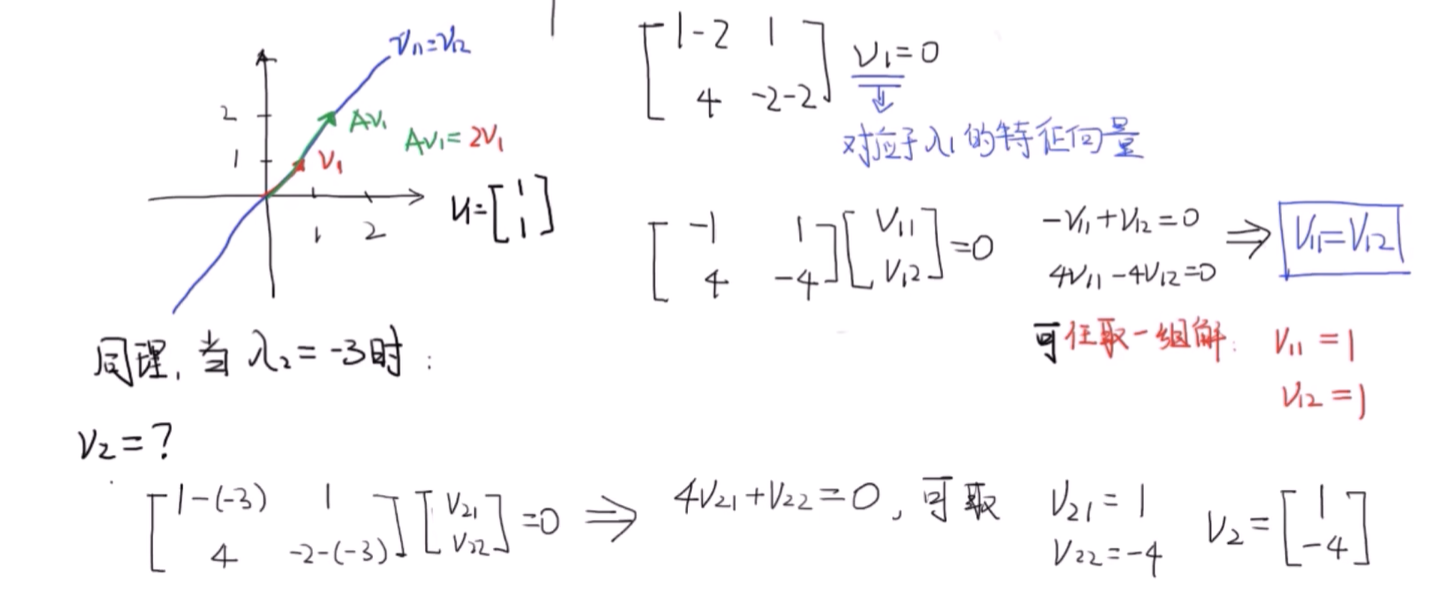 v₁₁=v₁₂
2
Av₁
Av₁=2v₁
1
v₁
1
2
u=[1; 1]
[1-2 1; 4 -2-2] v₁=0
对应于λ₁的特征向量
[-1 1; 4 -4][v₁₁; v₁₂]=0
-v₁₁+v₁₂=0
4v₁₁-4v₁₂=0
⇒ v₁₁=v₁₂
可任取一组解: v₁₁=1
v₁₂=1
同理, 当λ₂=-3时:
v₂=?
[1-(-3) 1; 4 -2-(-3)][v₂₁; v₂₂]=0 ⇒ 4v₂₁+v₂₂=0, 可取
v₂₁=1
v₂₂=-4
v₂=[1; -4]